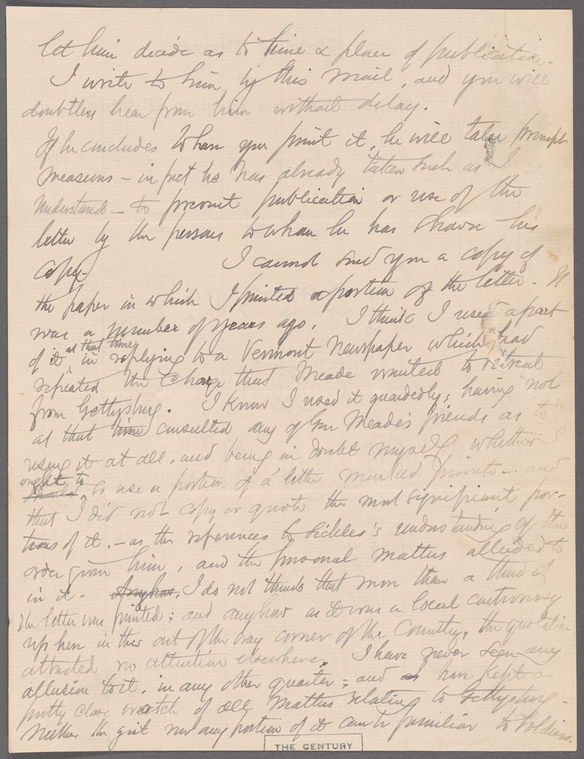 let him decide as to time & place of publication.
I write to him by this mail and you will
doubtless hear from him without delay.
If he concludes to have you print it, he will take prompt
measures – in fact he has already taken such as I
understand – to prevent publication or use of the
letter by the persons to whom he has shown his
copy. I cannot send you a copy of
the paper in which I printed a portion of the letter. It
was a number of years ago. I think I used a part
of it, at that time, in replying to a Vermont newspaper which had
repeated the charge that Meade wanted to retreat
from Gettysburg. I know I used it guardedly; having not
at that time consulted any of Gen Meade's friends as to
using it at all, and being in doubt myself whether I
ought to use a portion of a letter marked private – and
that I did not copy or quote the most significant por-
tions of it. – as the references to Sickles's understanding of the
order given him, and the personal matters alluded to
in it. Anyhow, I do not think that more than a third of
the letter was printed; and anyhow as it was a local controversy
up here in this out of the way corner of the Country, the quotation
attracted no attention elsewhere. I have never seen any
allusion to it, in any other quarter; and have kept a
pretty close watch of all matters relating to Gettysburg.
Neither the gist nor any portion of it can be familiar to soldiers.
THE CENTURY